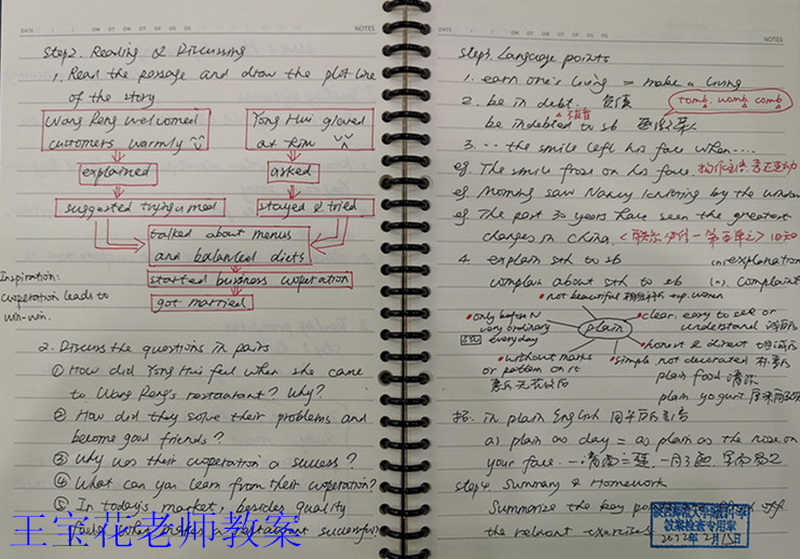 DATE / /
NOTES
Step2. Reading & Discussing
1. Read the passage and draw the plot line
of the story
Wang Peng welcomed
customers warmly
Yong Hui glared
at him
explained
asked
suggested trying a meal
stayed & tried
talked about menus
and balanced diets
started business cooperation
got married
Inspiration:
cooperation leads to
win-win.
2. Discuss the questions in pairs
① How did Yong Hui feel when she came
to Wang Peng's restaurant? Why?
② How did they solve their problems and
become good friends?
③ Why was their cooperation a success?
④ What can you learn from their cooperation?
⑤ In today's market, besides quality
a restaurant successful
王宝花老师教案
NOTES
Step3. Language points
1. earn one's living = make a living
2. be in debt. 负债
tomb, womb, comb
be indebted to sb 感激某人
不发音
3. ... the smile left his face when....
eg. The smile froze on his face
eg. Morning saw Nancy knitting by the window
eg. The past 30 years have seen the greatest
changes in China.
4. explain sth to sb (n) explanation
complain about sth to sb (n). complaint
plain
not beautiful esp. women
only before N
very ordinary
everyday
without marks
or pattern on it
clear, easy to see or
understand
honest & direct
simple not decorated 朴素
plain food 清淡
plain yogurt
in plain English
as plain as day = as plain as the nose on
your face.
Step4. Summary & Homework
Summarize the key points & off
the relevant exercises
教案检查专用章